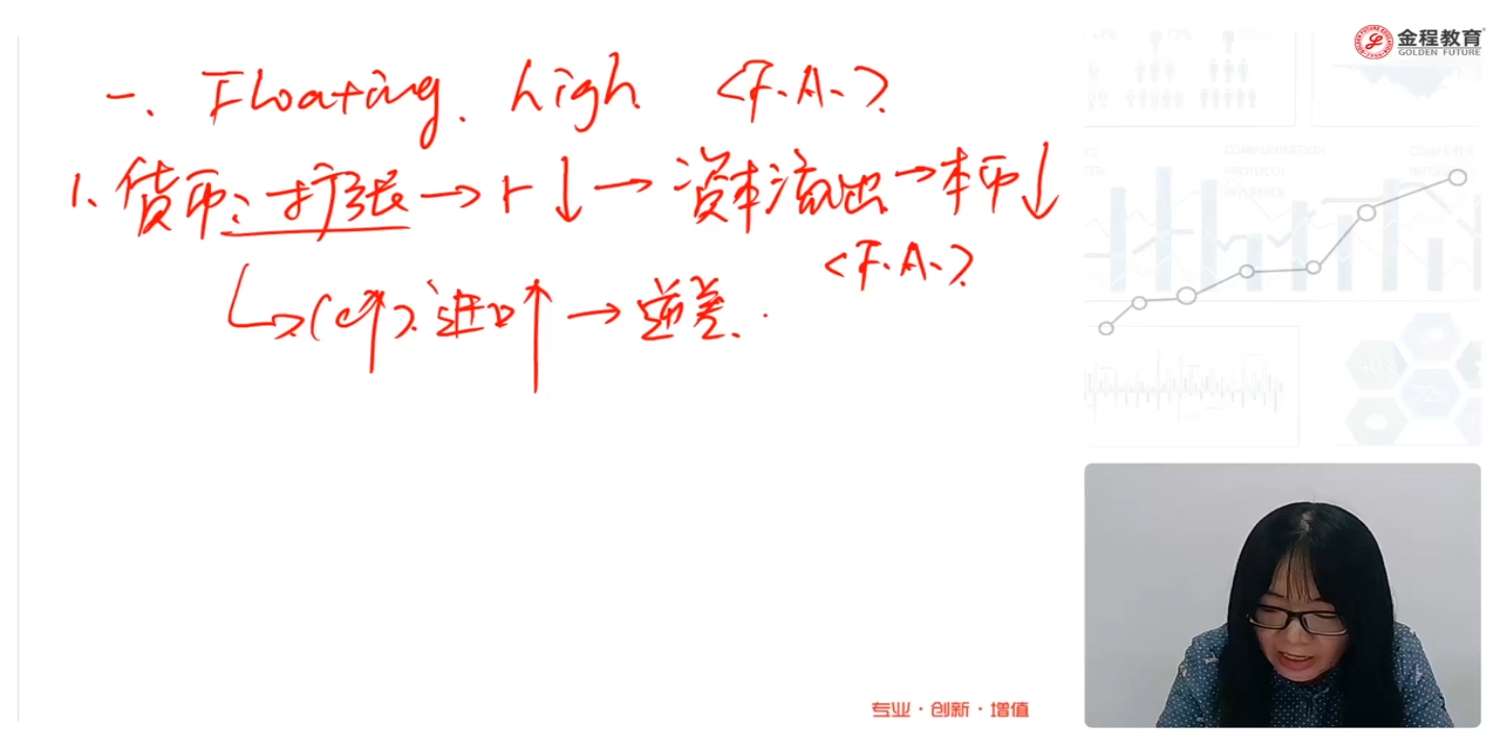 金程教育
GOLDEN FUTURE
一. Floating. high <F.A.>
1. 货币: 扩张 → r ↓ → 资本流出 → 本币 ↓
<F.A.>
↳ (C↑). 进口 ↑ → 逆差.
专业·创新·增值